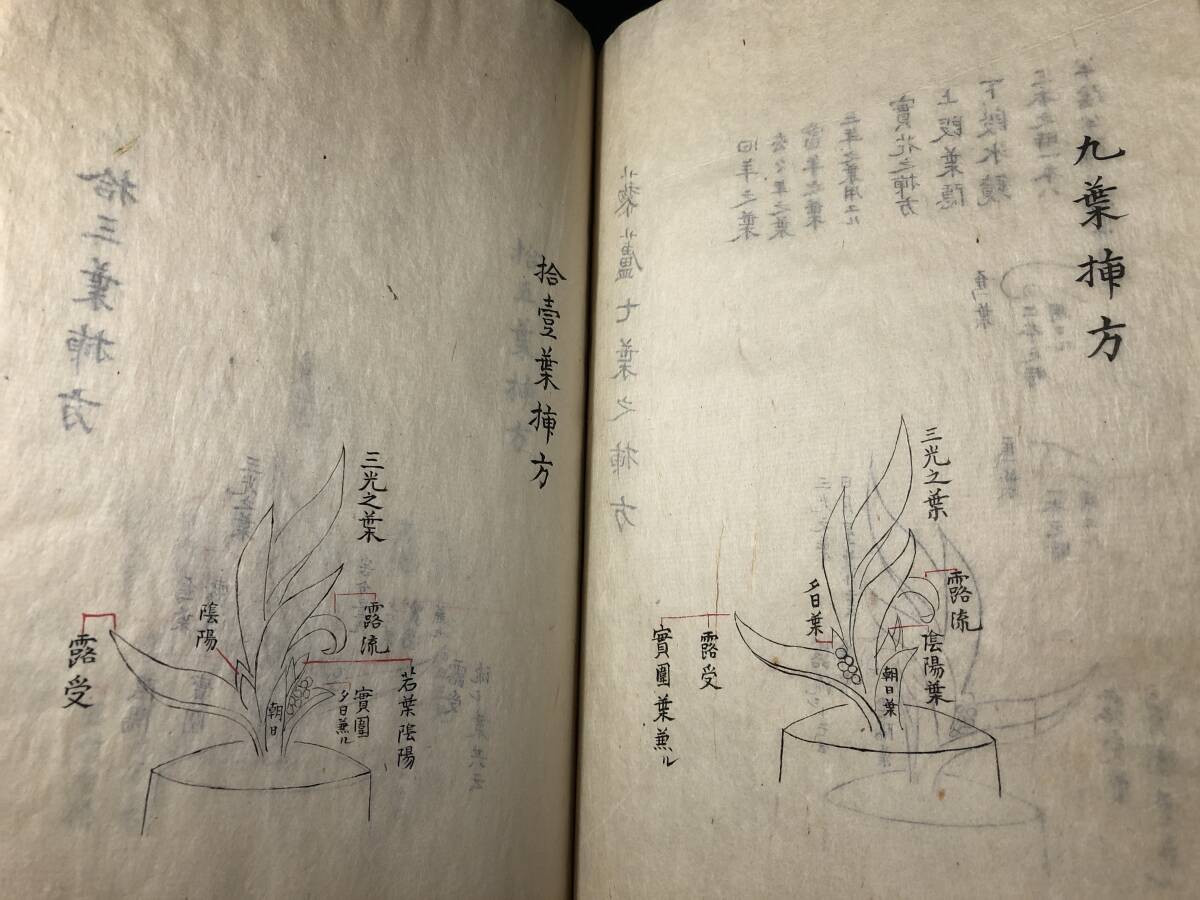 九葉揷方
三光之葉
露流
陰陽葉
朝日葉
夕日葉
露受
實圍葉兼ル
拾壹葉揷方
三光之葉
露流
若葉陰陽
實圍
夕日兼ル
朝日
陰陽
露受